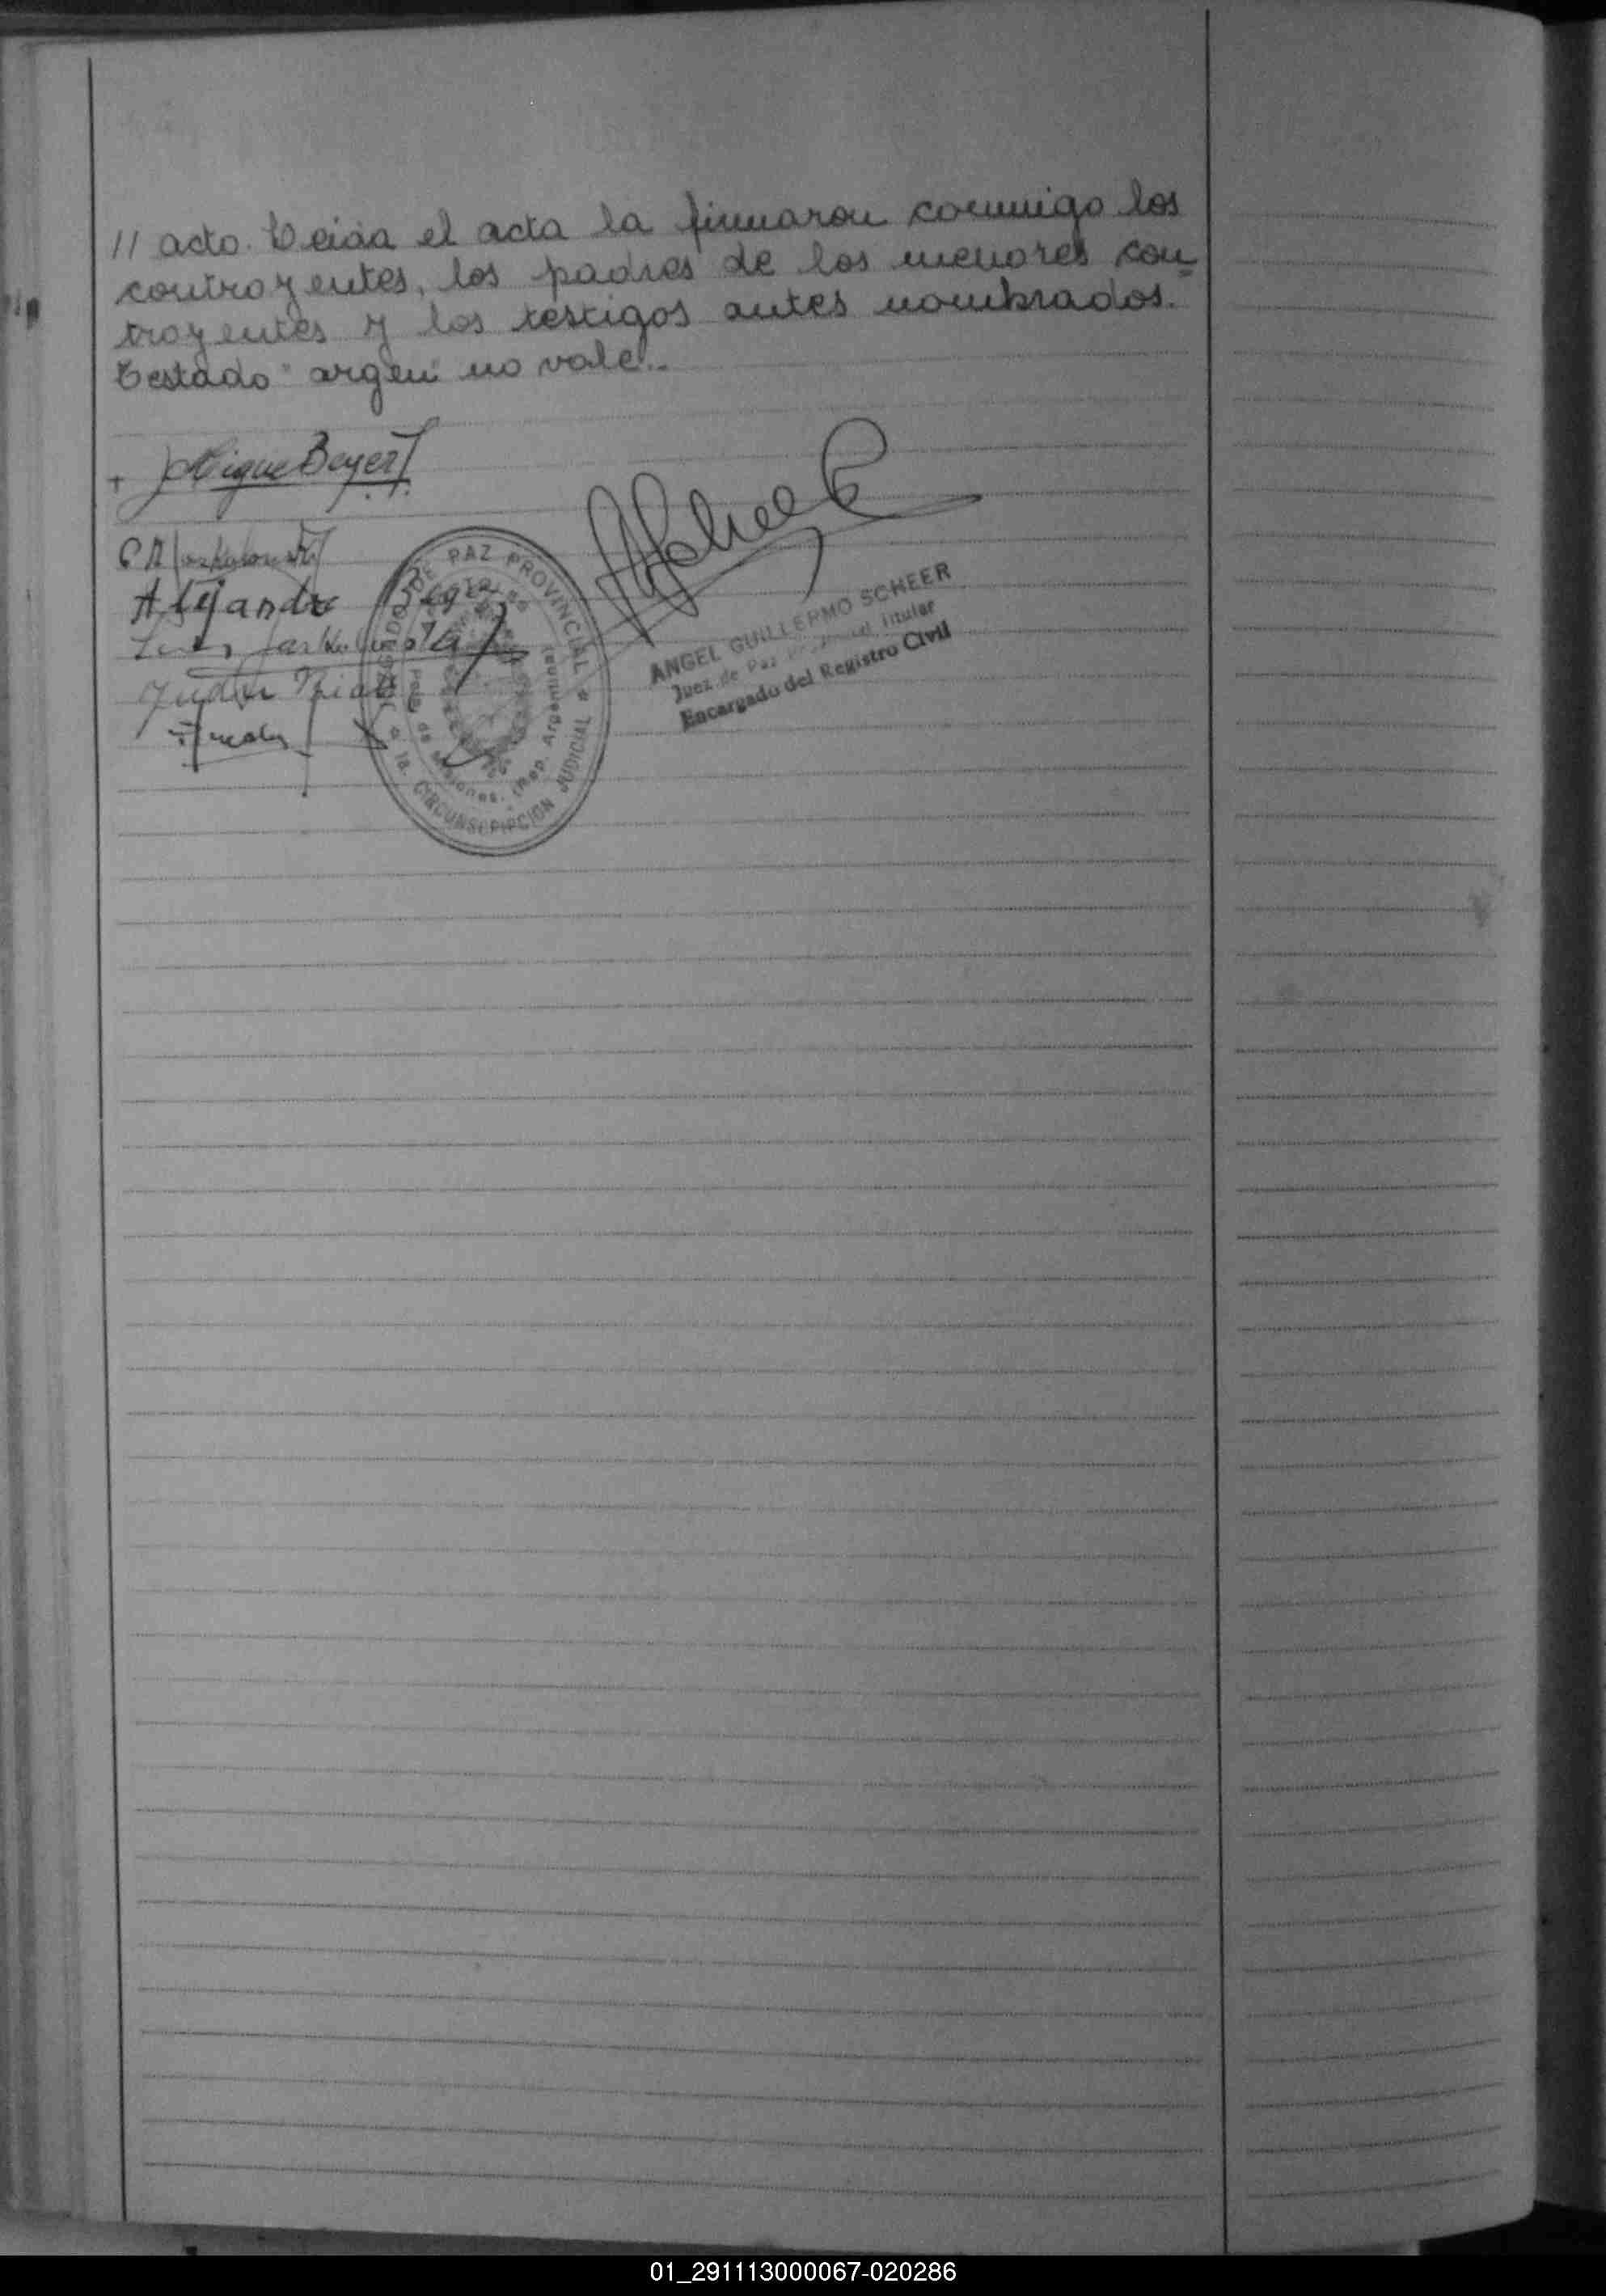 // acto. Leida el acta la firmaron conmigo los
contrayentes, los padres de los menores con=
trayentes y los testigos antes nombrados.
Testado "argen" no vale.-
Migue Beyer
Alejandro Beyer
JUZGADO DE PAZ PROVINCIAL
1a. CIRCUNSCRIPCION JUDICIAL
de Misiones. (Rep. Argentina)
ANGEL GUILLERMO SCHEER
Juez de Paz Titular
Encargado del Registro Civil
01_291113000067-020286